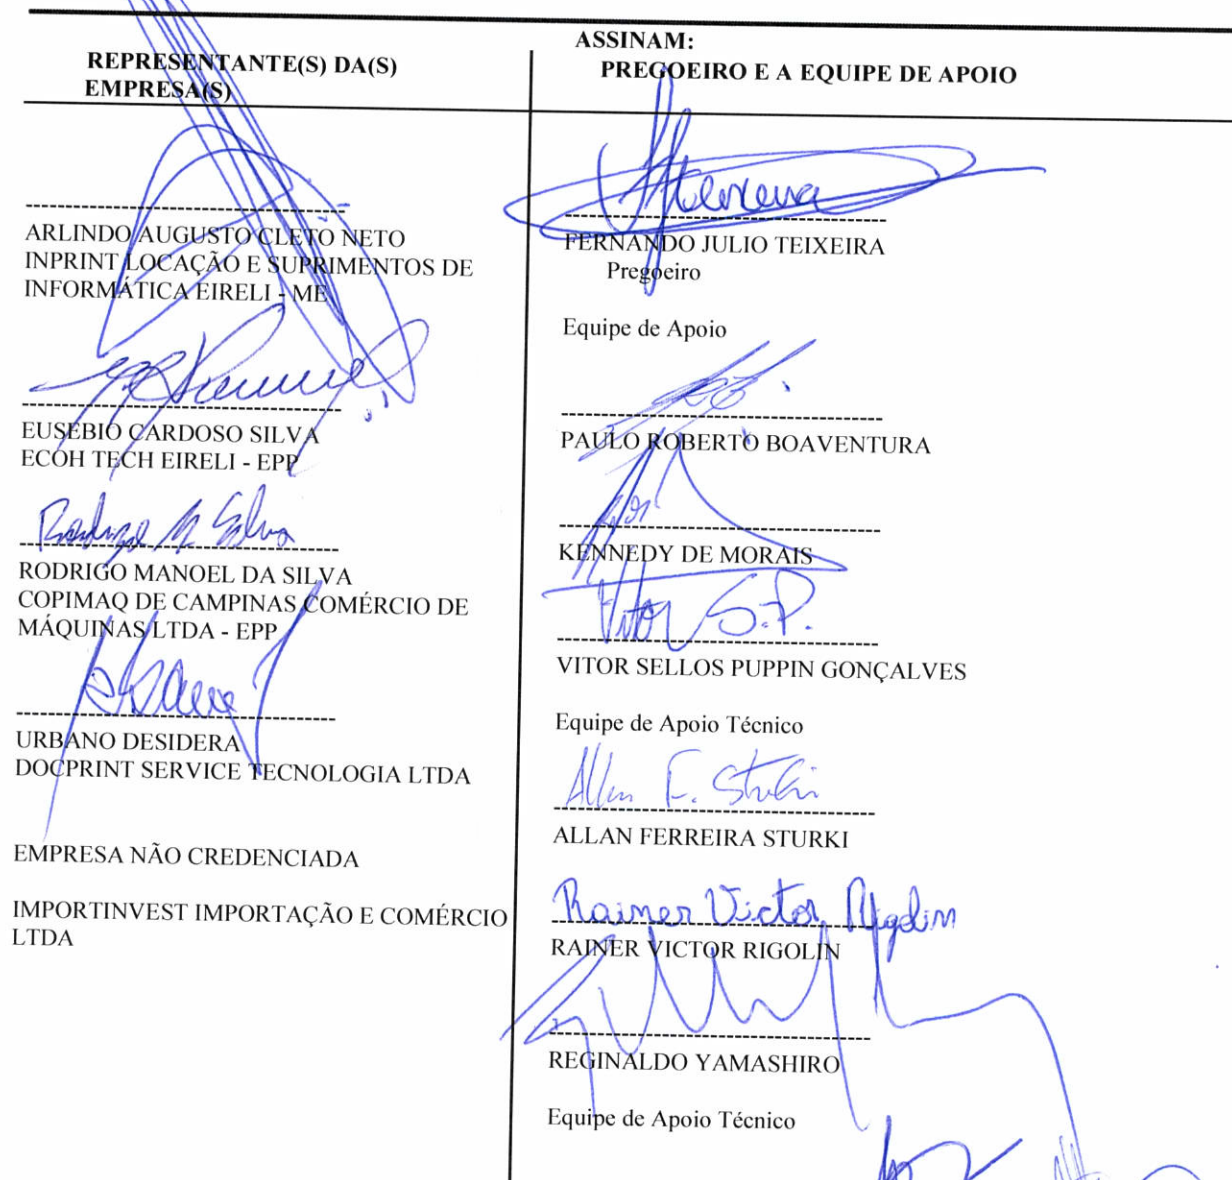 ASSINAM:
REPRESENTANTE(S) DA(S)
EMPRESA(S)
ARLINDO AUGUSTO CLETO NETO
INPRINT LOCAÇÃO E SUPRIMENTOS DE
INFORMÁTICA EIRELI - ME
EUSEBIO CARDOSO SILVA
ECOH TECH EIRELI - EPP
Rodrigo M Silva
RODRIGO MANOEL DA SILVA
COPIMAQ DE CAMPINAS COMÉRCIO DE
MÁQUINAS LTDA - EPP
URBANO DESIDERA
DOCPRINT SERVICE TECNOLOGIA LTDA
EMPRESA NÃO CREDENCIADA
IMPORTINVEST IMPORTAÇÃO E COMÉRCIO
LTDA
PREGOEIRO E A EQUIPE DE APOIO
FERNANDO JULIO TEIXEIRA
Pregoeiro
Equipe de Apoio
PAULO ROBERTO BOAVENTURA
KENNEDY DE MORAIS
Vitor S.P.
VITOR SELLOS PUPPIN GONÇALVES
Equipe de Apoio Técnico
Allan F. Sturki
ALLAN FERREIRA STURKI
Rainer Victor Rigolin
RAINER VICTOR RIGOLIN
REGINALDO YAMASHIRO
Equipe de Apoio Técnico